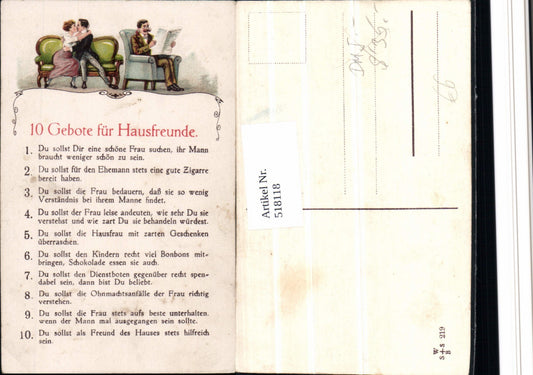 10 Gebote für Hausfreunde.
1. Du sollst Dir eine schöne Frau suchen, ihr Mann
braucht weniger schön zu sein.
2. Du sollst für den Ehemann stets eine gute Zigarre
bereit haben.
3. Du sollst die Frau bedauern, daß sie so wenig
Verständnis bei ihrem Manne findet.
4. Du sollst der Frau leise andeuten, wie sehr Du sie
verstehst und wie zart Du sie behandeln würdest.
5. Du sollst die Hausfrau mit zarten Geschenken
überraschen.
6. Du sollst den Kindern recht viel Bonbons mit-
bringen, Schokolade essen sie auch.
7. Du sollst den Dienstboten gegenüber recht spen-
dabel sein, dann bist Du beliebt.
8. Du sollst die Ohnmachtsanfälle der Frau richtig
verstehen.
9. Du sollst die Frau stets aufs beste unterhalten,
wenn der Mann mal ausgegangen sein sollte.
10. Du sollst als Freund des Hauses stets hilfreich
sein.
Artikel Nr.
518118
66
W
S+S 219
B